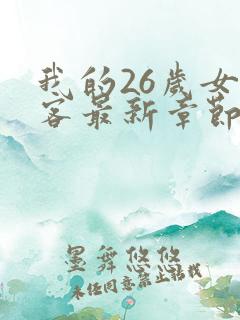 我的26岁女
客最新章节
墨舞悠悠
未经同意禁止转载